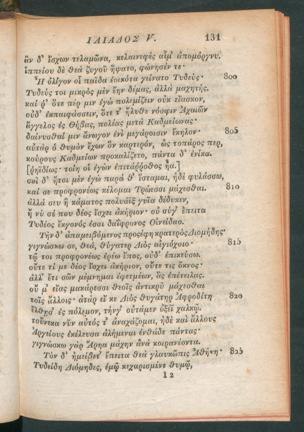 ΙΛΙΑΔΟΣ V. 131
ἂν δ' ἴσχων τελαμῶνα, κελαινεφὲς αἷμ' ἀπομόργνυ.
ἱππείου δὲ θεὰ ζυγοῦ ἥψατο, φώνησέν τε·
Ἦ ὀλίγον οἷ παῖδα ἐοικότα γείνατο Τυδεύς· 800
Τυδεύς τοι μικρὸς μὲν ἔην δέμας, ἀλλὰ μαχητής.
καί ῥ' ὅτε πέρ μιν ἐγὼ πολεμίζειν οὐκ εἴασκον,
οὐδ' ἐκπαιφάσσειν, ὅτε τ' ἤλυθε νόσφιν Ἀχαιῶν
ἄγγελος ἐς Θήβας, πολέας μετὰ Καδμείωνας·
δαίνυσθαί μιν ἄνωγον ἐνὶ μεγάροισιν ἕκηλον· 805
αὐτὰρ ὁ θυμὸν ἔχων ὃν καρτερόν, ὡς τοπάρος περ,
κούρους Καδμείων προκαλίζετο, πάντα δ' ἐνίκα.
[ῥηϊδίως· τοίη οἱ ἐγὼν ἐπιτάρροθος ἦα.]
σοὶ δ' ἤτοι μὲν ἐγὼ παρά θ' ἵσταμαι, ἠδὲ φυλάσσω,
καί σε προφρονέως κέλομαι Τρώεσσι μάχεσθαι. 810
ἀλλά σευ ἢ κάματος πολυάϊξ γυῖα δέδυκεν,
ἤ νύ σέ που δέος ἴσχει ἀκήριον· οὐ σύγ' ἔπειτα
Τυδέος ἔκγονός ἐσσι δαΐφρονος Οἰνεΐδαο.
Τὴν δ' ἀπαμειβόμενος προσέφη κρατερὸς Διομήδης·
γιγνώσκω σε, θεά, θύγατερ Διὸς αἰγιόχοιο· 815
τῷ τοι προφρονέως ἐρέω ἔπος, οὐδ' ἐπικεύσω.
οὔτε τί με δέος ἴσχει ἀκήριον, οὔτε τις ὄκνος·
ἀλλ' ἔτι σῶν μέμνημαι ἐφετμέων, ἃς ἐπέτειλας.
οὔ μ' εἴας μακάρεσσι θεοῖς ἀντικρὺ μάχεσθαι
τοῖς ἄλλοις· ἀτὰρ εἴ κε Διὸς θυγάτηρ Ἀφροδίτη 820
ἔλθῃσ' ἐς πόλεμον, τήνγ' οὐτάμεν ὀξέϊ χαλκῷ.
τοὔνεκα νῦν αὐτός τ' ἀναχάζομαι, ἠδὲ καὶ ἄλλους
Ἀργείους ἐκέλευσα ἀλήμεναι ἐνθάδε πάντας·
γιγνώσκω γὰρ Ἄρηα μάχην ἀνὰ κοιρανέοντα.
Τὸν δ' ἠμείβετ' ἔπειτα θεὰ γλαυκῶπις Ἀθήνη· 825
Τυδείδη Διόμηδες, ἐμῷ κεχαρισμένε θυμῷ,
I 2